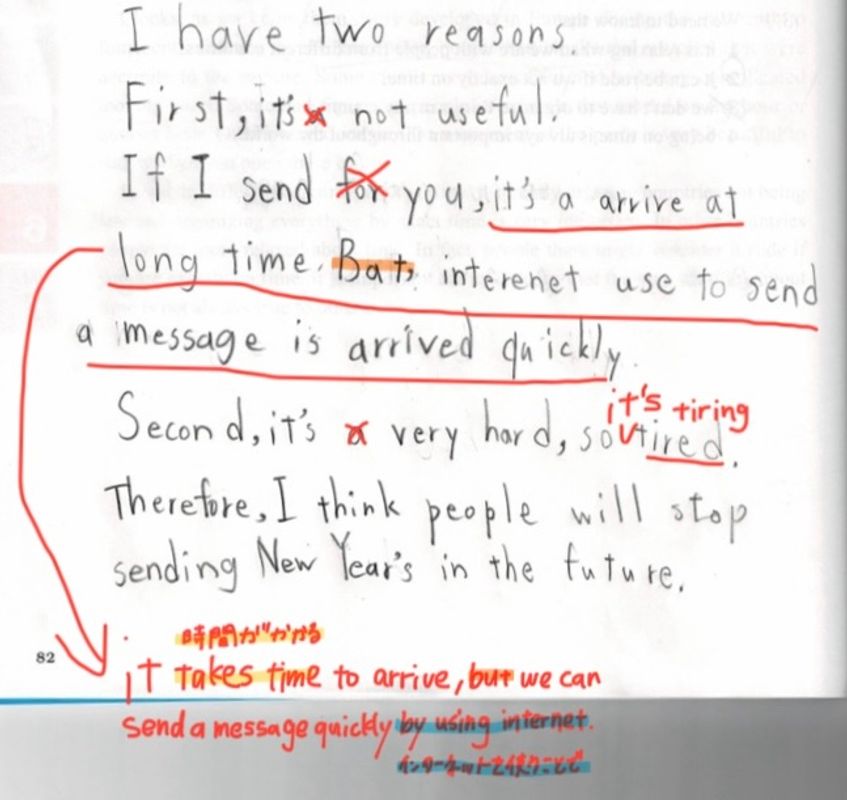 I have two reasons
First, it's a not useful.
If I send for you, it's a arrive at
long time. Bat, interenet use to send
a message is arrived quickly.
it's tiring
Second, it's a very hard, so tired.
Therefore, I think people will stop
sending New Year's in the future.
時間がかかる
82
it takes time to arrive, but we can
send a message quickly by using internet.
インターネットを使うことで